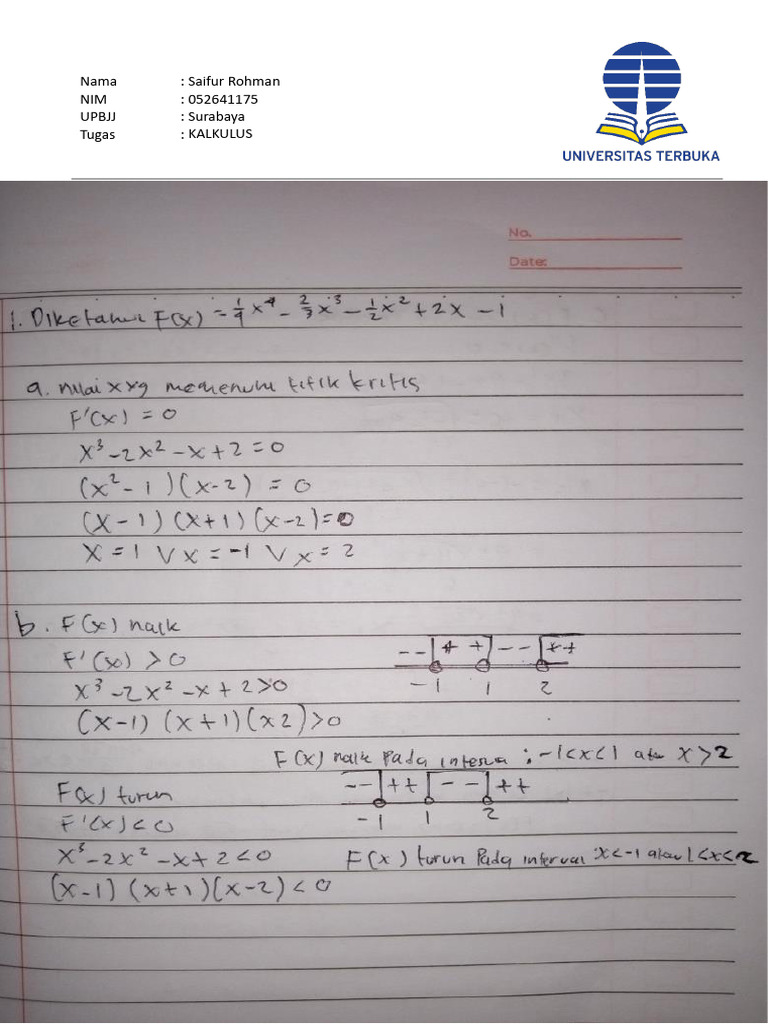 Nama : Saifur Rohman
NIM : 052641175
UPBJJ : Surabaya
Tugas : KALKULUS
UNIVERSITAS TERBUKA
No.
Date:
1. Diketahui F(x) = 1/4 x⁴ - 2/3 x³ - 1/2 x² + 2x - 1
a. nilai x yg memenuhi titik kritis
F'(x) = 0
x³ - 2x² - x + 2 = 0
(x² - 1)(x-2) = 0
(x-1)(x+1)(x-2)=0
x = 1 ∨ x = -1 ∨ x = 2
b. F(x) naik
F'(x) > 0
-- + + -- ++
-1 1 2
x³ - 2x² - x + 2 > 0
(x-1)(x+1)(x2) > 0
F(x) naik Pada interval : -1<x<1 atau x > 2
F(x) turun
-- ++ -- ++
-1 1 2
F'(x) < 0
x³ - 2x² - x + 2 < 0
F(x) turun Pada interval : x < -1 atau 1 < x < 2
(x-1)(x+1)(x-2) < 0